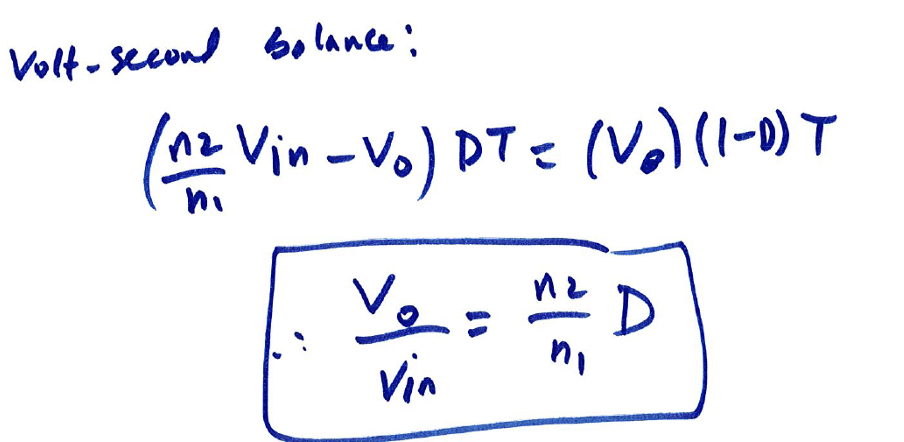 Volt-second balance:
(n2/n1 Vin - Vo) DT = (Vo)(1-D)T
∴ Vo/Vin = n2/n1 D